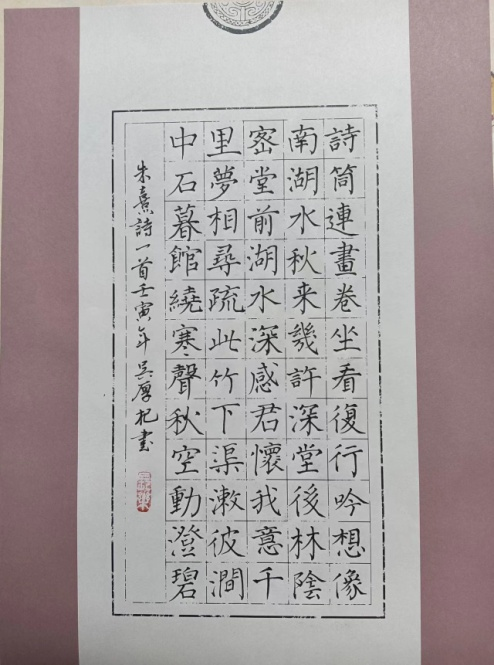 詩筒連畫卷坐看復行吟想像
南湖水秋来幾許深堂後林陰
密堂前湖水深感君懷我意千
里夢相尋疏此竹下渠漱彼澗
中石暮館繞寒聲秋空動澄碧
朱熹詩一首壬寅年吴厚杞書